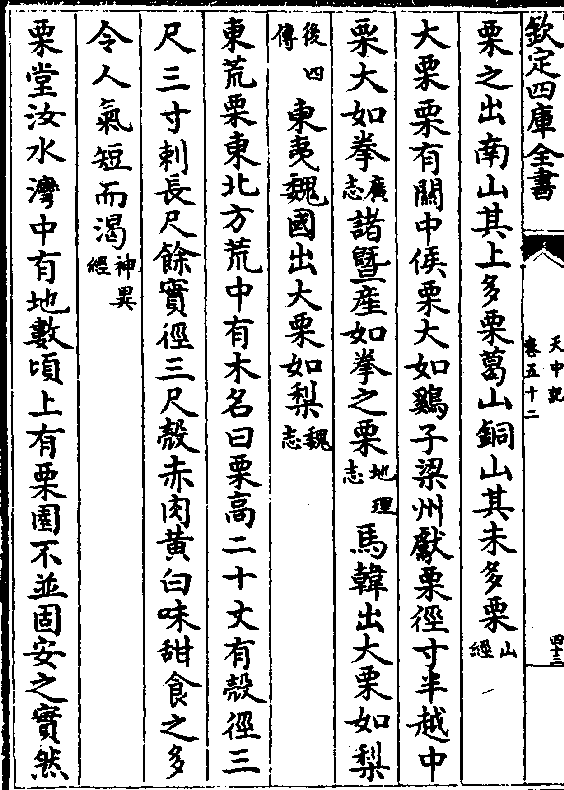 欽定四庫全書
天中記
卷五十二
四十三
栗之出南山其上多栗葛山銅山其未多栗山經
大栗栗有關中侯栗大如鷄子梁州獻栗徑寸半越中
栗大如拳廣志諸暨産如拳之栗地理志馬韓出大栗如梨
後四傳東夷魏國出大栗如梨魏志
東荒栗東北方荒中有木名曰栗高二十丈有殻徑三
尺三寸刺長尺餘實徑三尺殻赤肉黄白味甜食之多
令人氣短而渴神異經
栗堂汝水灣中有地數頃上有栗園不並固安之實然